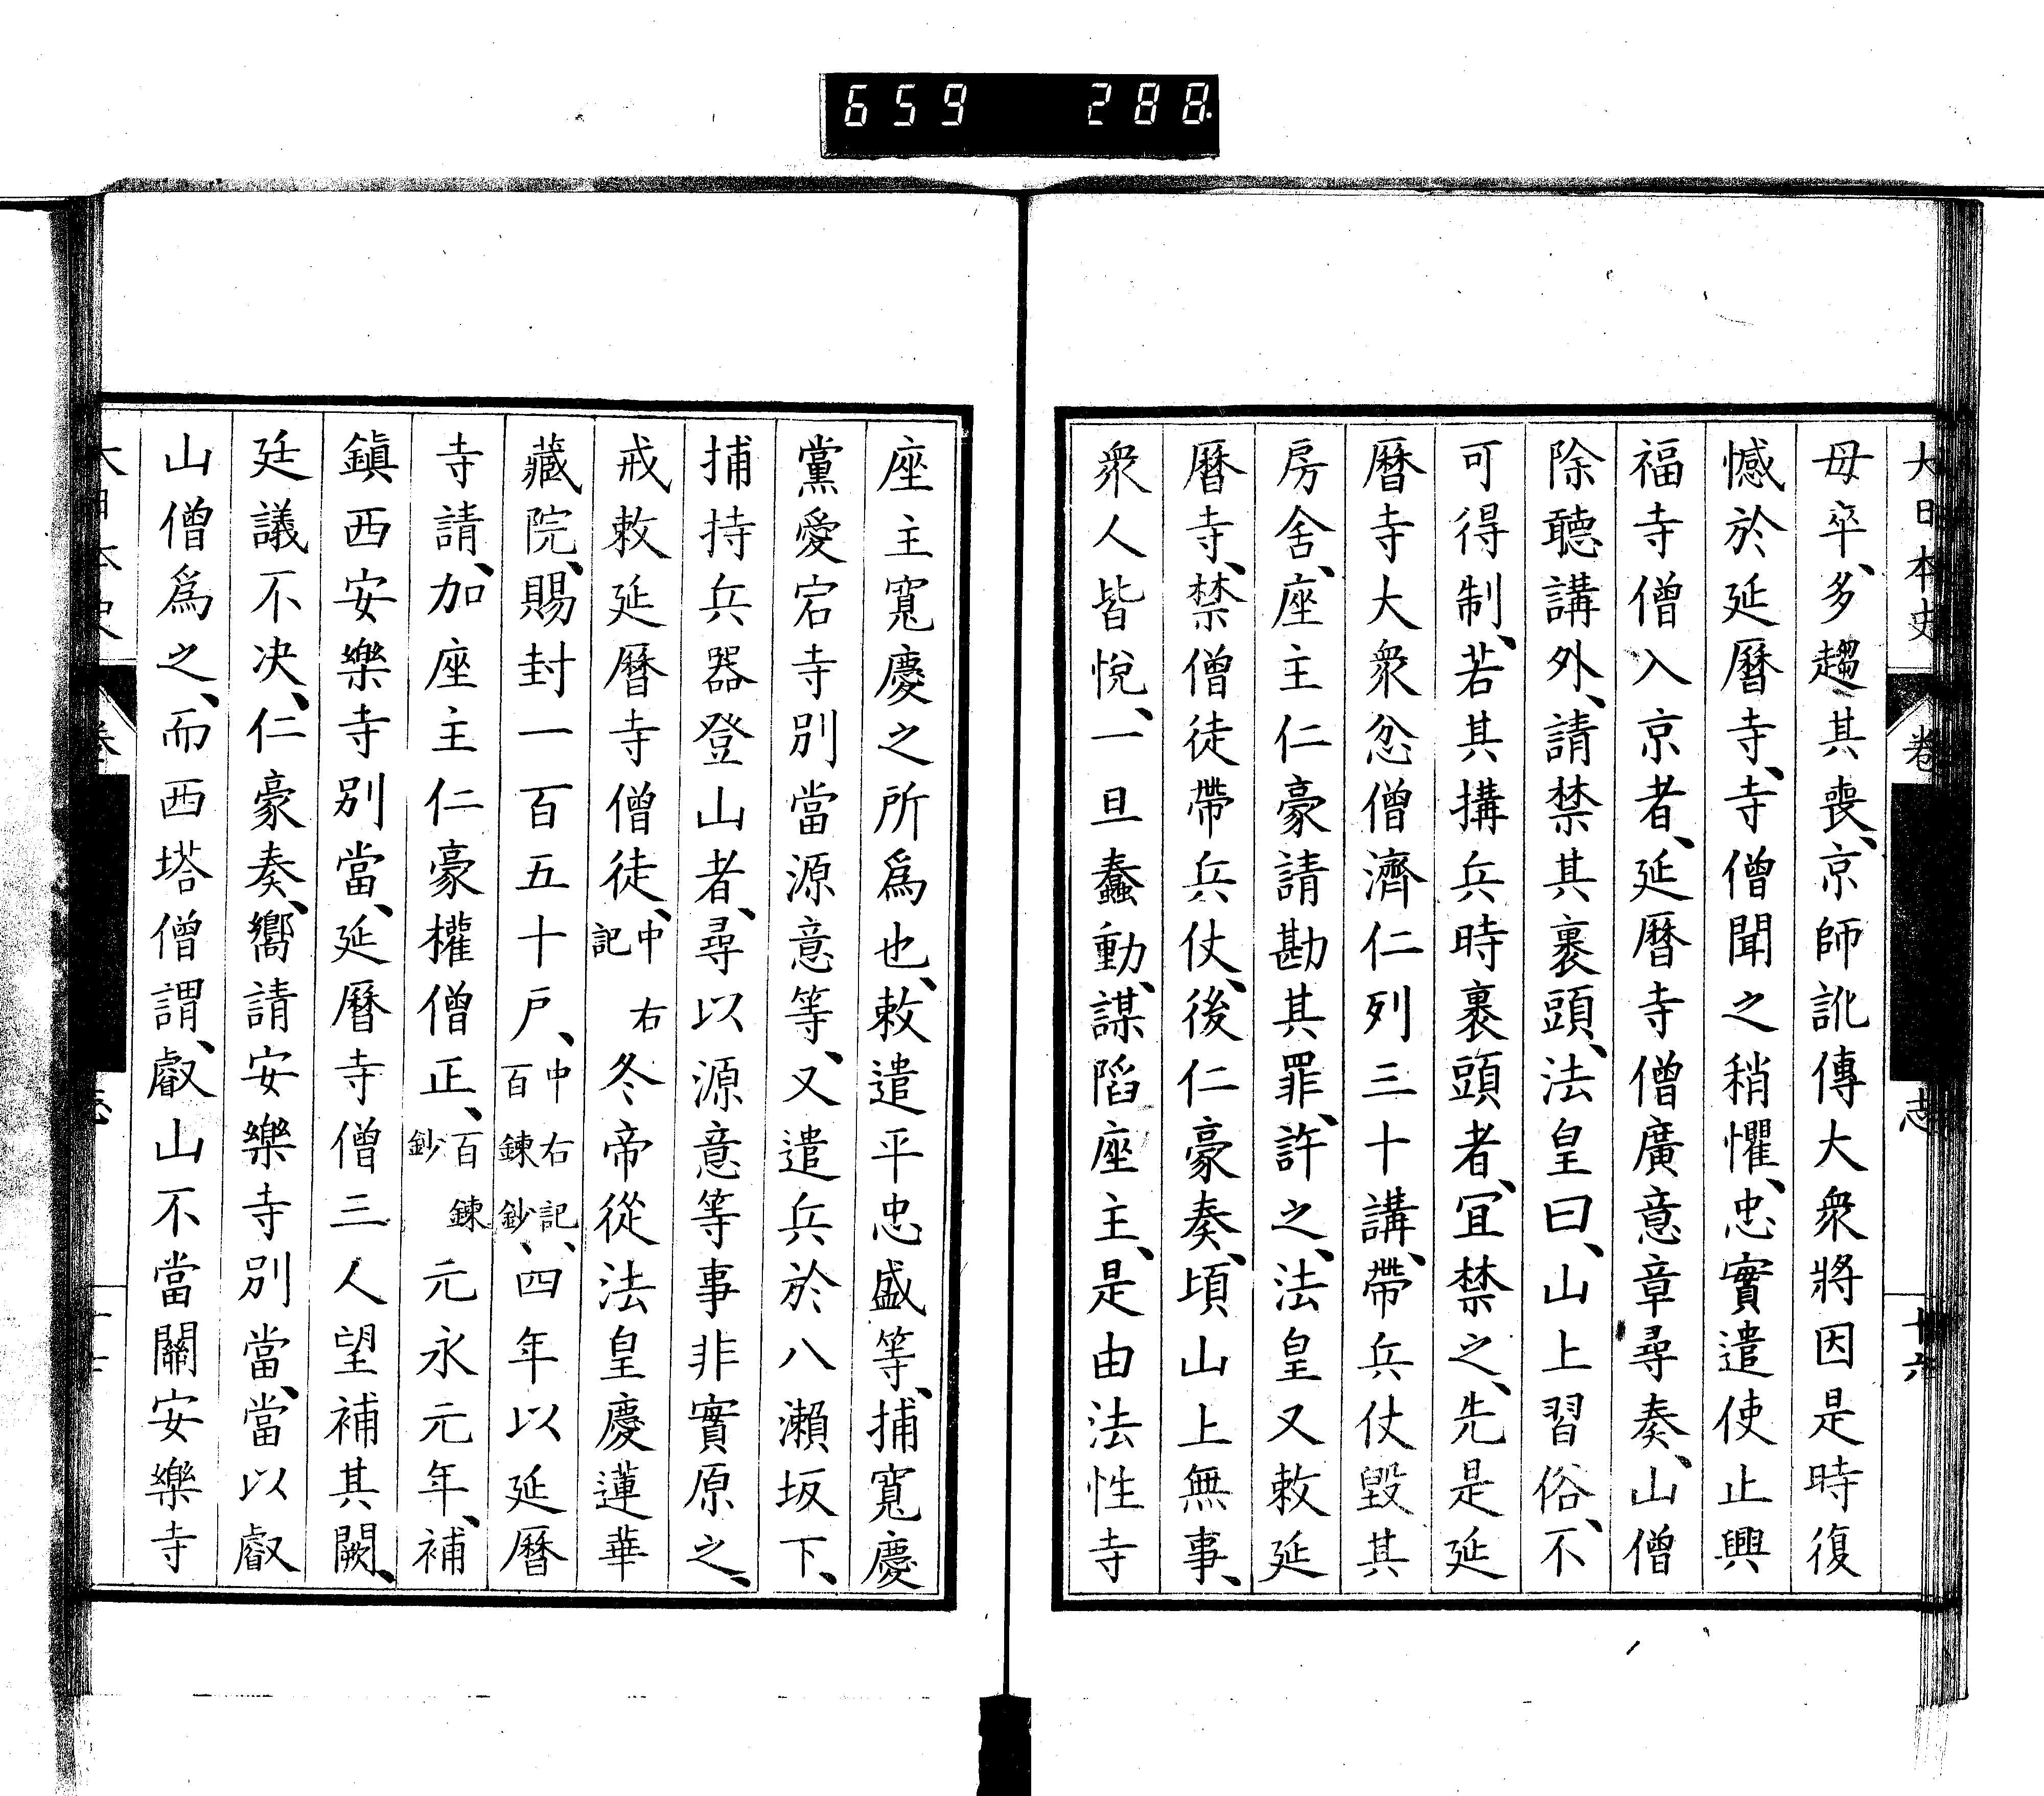 659 288.
大日本史 卷 志 十六
母卒、多趨其喪、京師訛傳大衆將因是時復
憾於延曆寺、寺僧聞之稍懼、忠實遣使止興
福寺僧入京者、延曆寺僧廣意章尋奏、山僧
除聽講外、請禁其裹頭、法皇曰、山上習俗、不
可得制、若其搆兵時裹頭者、宜禁之、先是延
曆寺大衆忿僧濟仁列三十講、帶兵仗毀其
房舍、座主仁豪請勘其罪、許之、法皇又敕延
曆寺、禁僧徒帶兵仗、後仁豪奏、頃山上無事、
衆人皆悅、一旦蠢動、謀陷座主、是由法性寺
座主寬慶之所爲也、敕遣平忠盛等、捕寬慶
黨愛宕寺別當源意等、又遣兵於八瀨坂下、
捕持兵器登山者、尋以源意等事非實原之、
戒敕延曆寺僧徒、中右記 冬帝從法皇慶蓮華
藏院、賜封一百五十戶、中右記、百鍊鈔 四年以延曆
寺請、加座主仁豪權僧正、百鍊鈔 元永元年、補
鎭西安樂寺別當、延曆寺僧三人望補其闕、
廷議不决、仁豪奏、嚮請安樂寺別當、當以叡
山僧爲之、而西塔僧謂、叡山不當關安樂寺
大日本史 卷 志